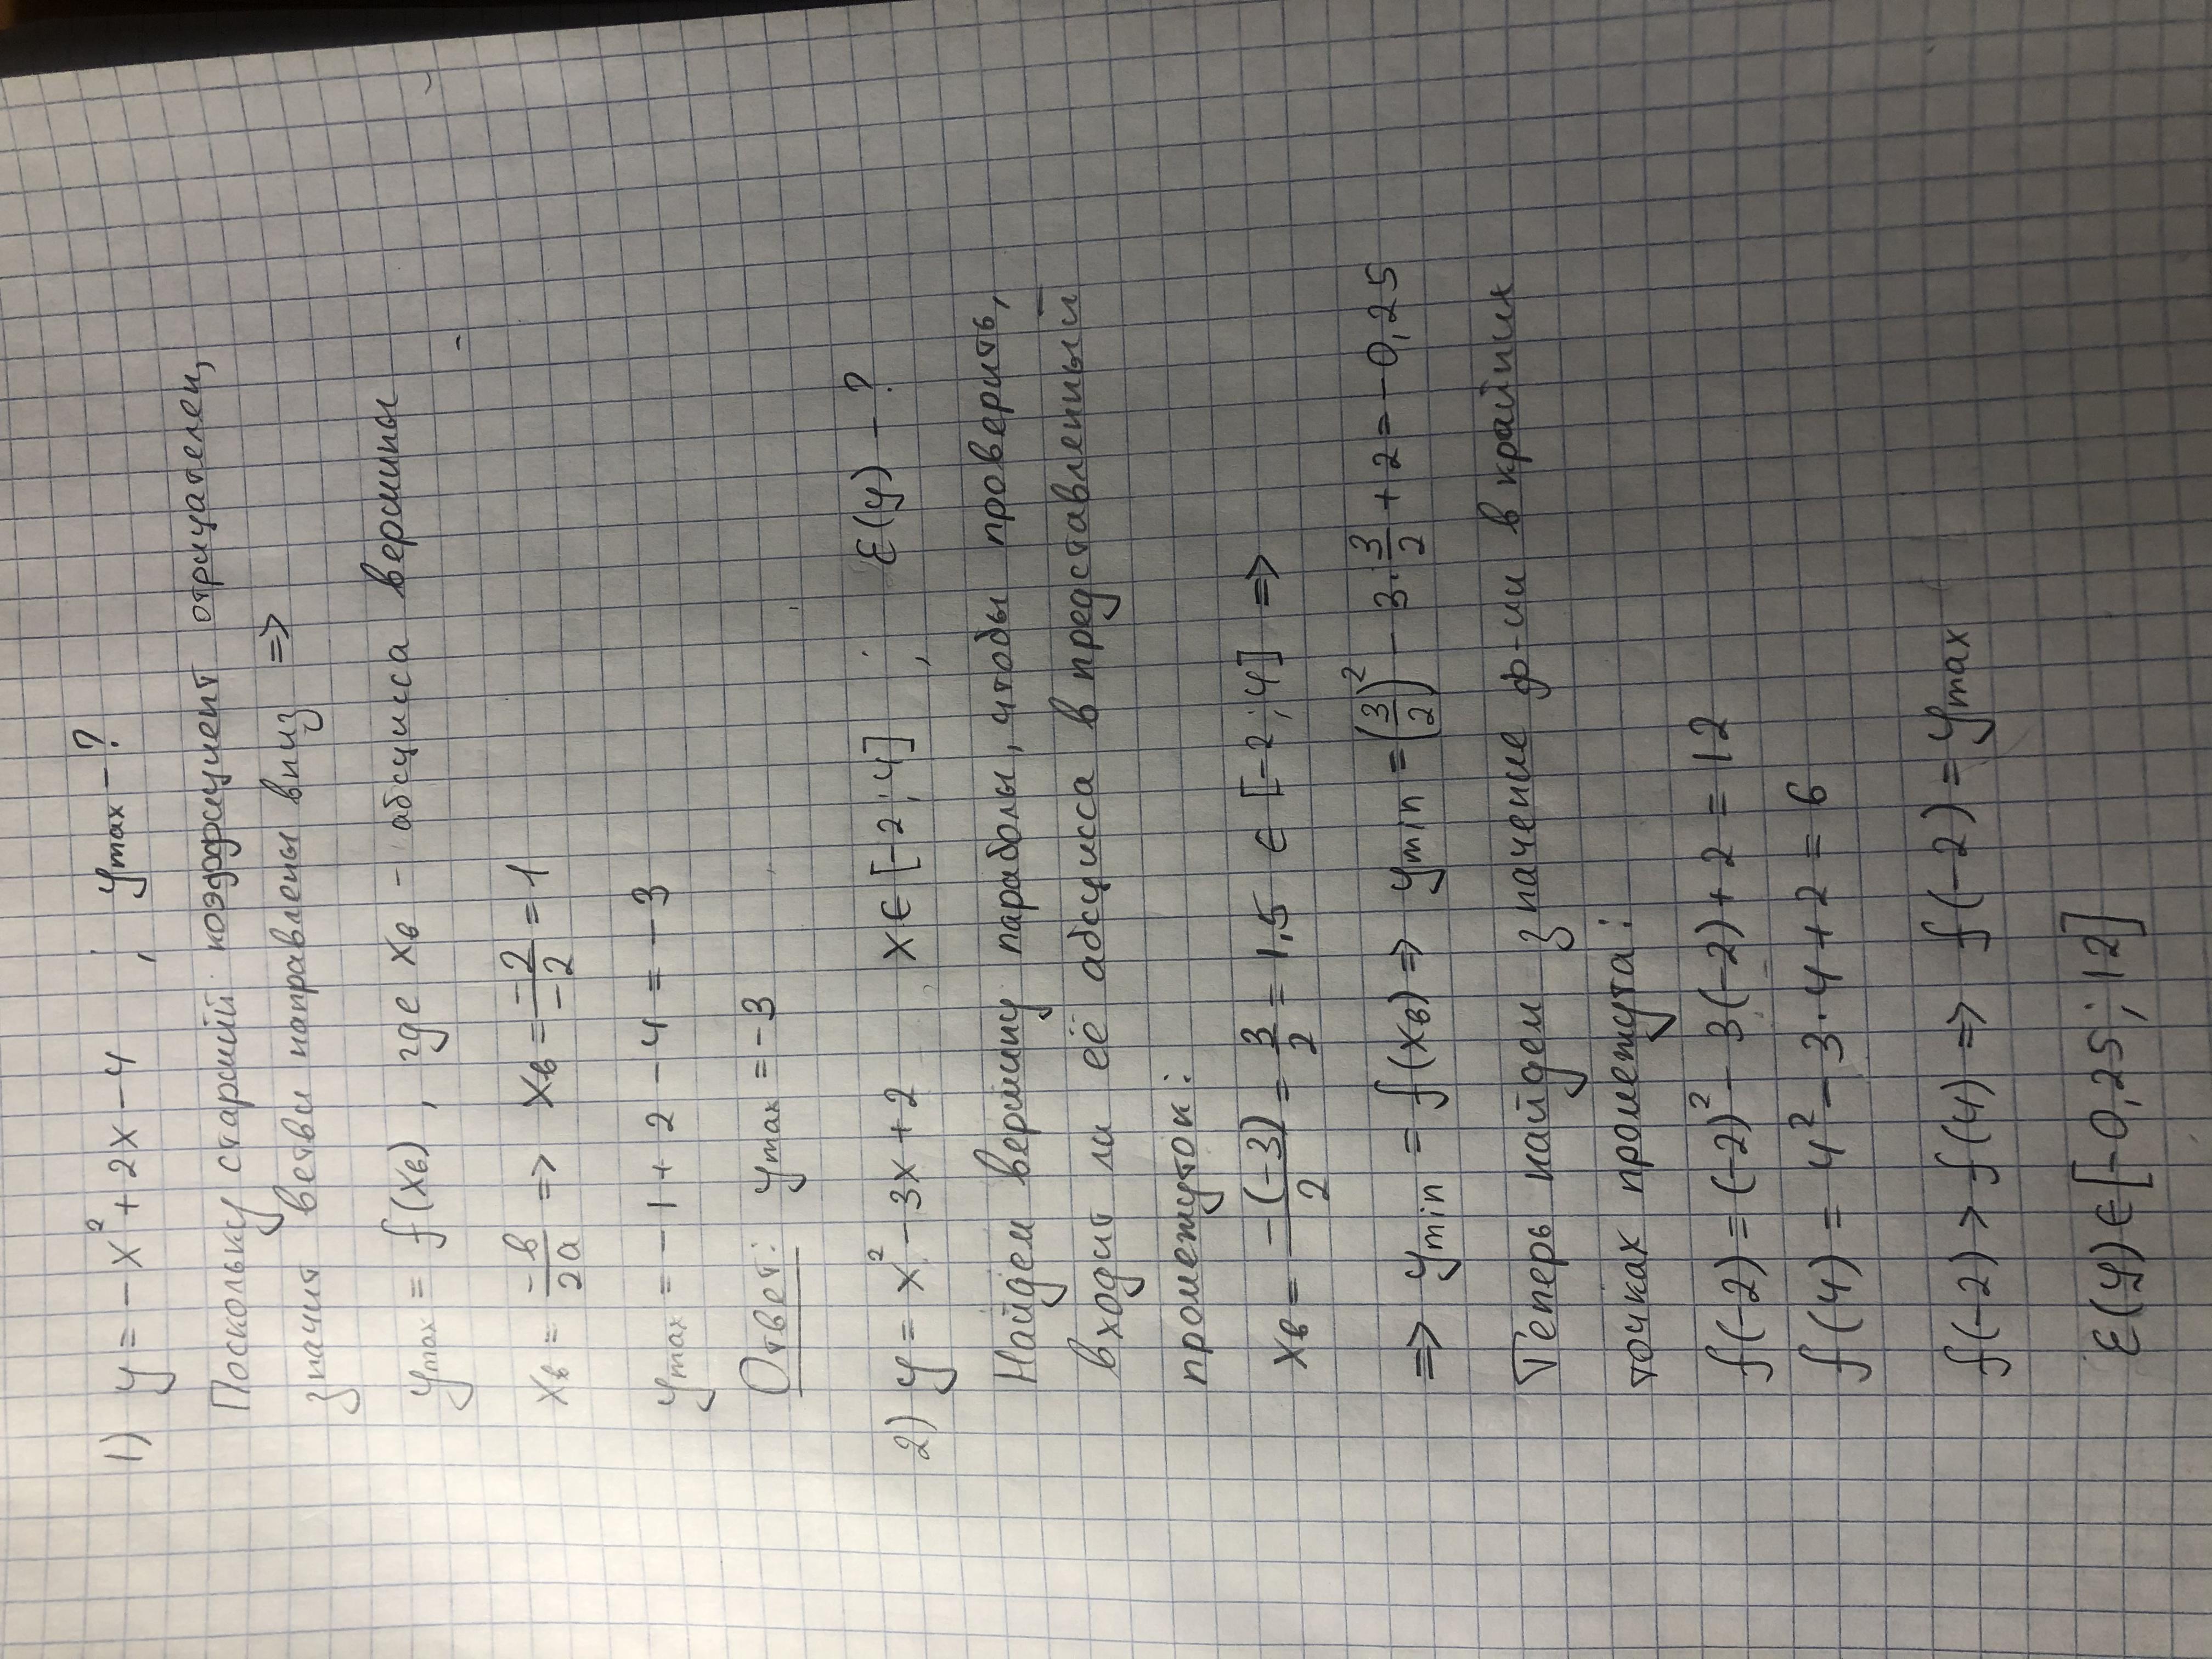 1) y = -x² + 2x - 4 ; ymax - ?
Поскольку старший коэффициент отрицателен,
значит ветви направлены вниз =>
ymax = f(xв) , где xв - абсцисса вершины
xв = -в/2a => xв = -2/-2 = 1
ymax = -1 + 2 - 4 = -3
Ответ: ymax = -3
2) y = x² - 3x + 2 x ∈ [-2; 4] ; E(y) - ?
Найдем вершину параболы, чтобы проверить,
входит ли её абсцисса в представленный
промежуток:
xв = -(-3)/2 = 3/2 = 1,5 ∈ [-2; 4] =>
=> ymin = f(xв) => ymin = (3/2)² - 3·3/2 + 2 = -0,25
Теперь найдем значение ф-ии в крайних
точках промежутка:
f(-2) = (-2)² - 3(-2) + 2 = 12
f(4) = 4² - 3·4 + 2 = 6
f(-2) > f(4) => f(-2) = ymax
E(y) ∈ [-0,25; 12]